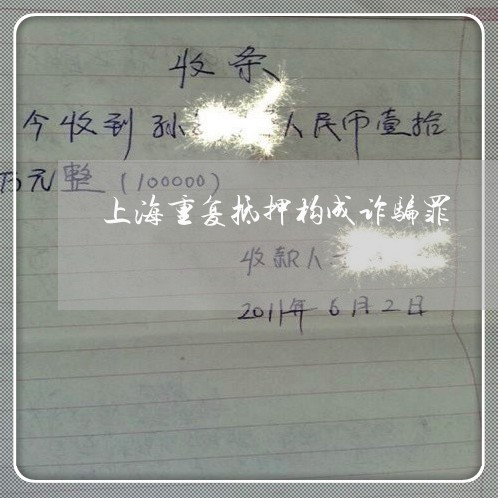 收条
今收到孙人民币壹拾
万元整(100000)
上海重复抵押构成诈骗罪
收款人
2011年6月2日